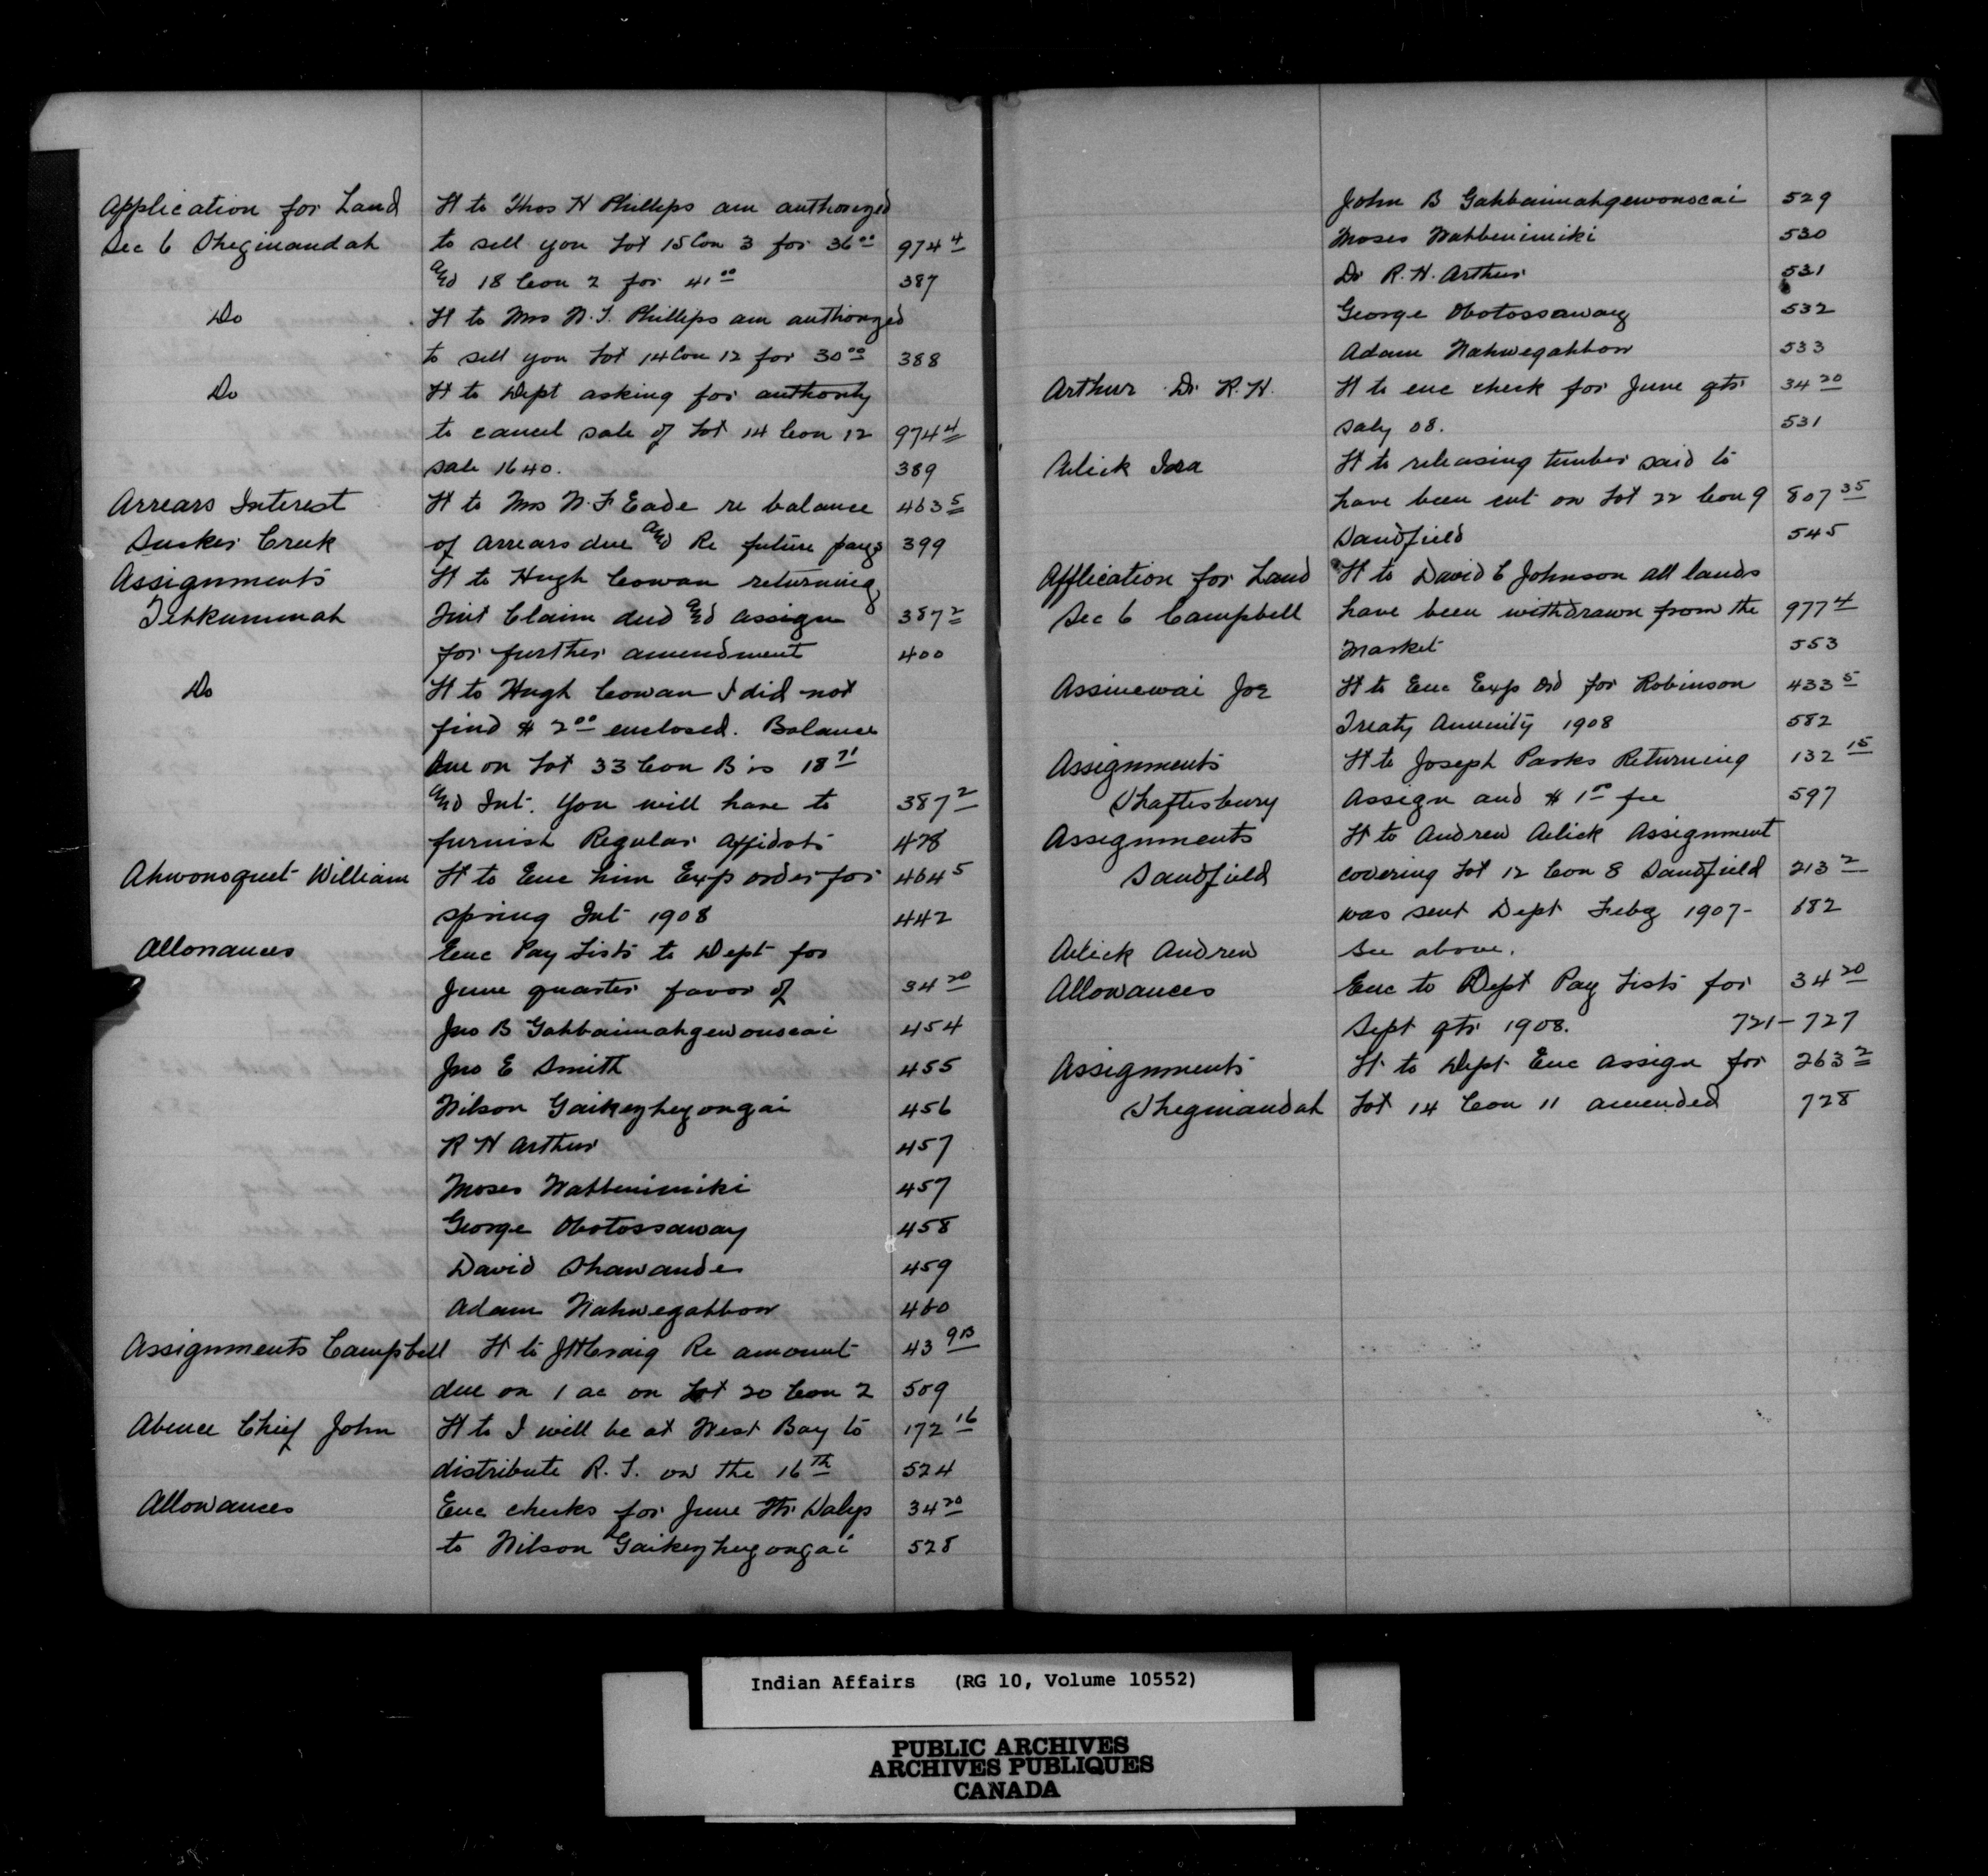 Application for Land Lt to Thos H Phillips am authorized
Sec 6 Sheginandah to sell you Lot 15 Con 3 for 36 00 974 4
and 18 Con 2 for 41 00 387
Do Lt to Mrs N. J. Phillips am authorized
to sell you Lot 14 Con 12 for 30 00 388
Do Lt to Dept asking for authority
to cancel sale of Lot 14 Con 12 974 4
sale 1640. 389
Arrears Interest Lt to Mrs N. F Eade re balance 463 5
Sucker Creek of arrears due and Re future pays 399
Assignments Lt to Hugh Cowan returning
Tehkummah Quit Claim deed and assign 387 2
for further amendment 400
Do Lt to Hugh Cowan I did not
find $ 2 00 enclosed. Balance
due on Lot 33 Con B is 18 71
and Int. you will have to 387 2
furnish Regular affidvts 478
Ahwonoquet William Lt to Enc him Exp order for 464 5
spring Int 1908 442
Allowances Enc Pay Lists to Dept for
June quarter favor of 34 20
Jno B Gahbaimahgewonscai 454
Jno E Smith 455
Wilson Gaikeyhegongai 456
R H Arthur 457
Moses Wahbenimiki 457
George Obotossaway 458
David Shawande 459
Adam Nahwegahbow 460
Assignments Campbell Lt to J H Craig Re amount 43 9B
due on 1 ac on Lot 20 Con 2 509
Abence Chief John Lt to I will be at West Bay to 172 16
distribute R. T. on the 16th 524
Allowances Enc checks for June 34 20
to Wilson Gaikeyhegongai 528
John B Gahbaimahgewonscai 529
Moses Wahbenimiki 530
Dr R. H. Arthur 531
George Obotossaway 532
Adam Nahwegahbow 533
Arthur Dr. R. H. Lt to enc check for June qtr 34 20
saly 08. 531
Aelick Isa Lt to releasing timber said to
have been cut on Lot 22 Con 9 807 35
Sandfield 545
Application for Land Lt to David C Johnson all lands
Sec 6 Campbell have been withdrawn from the 977 4
market 553
Assinewai Joe Lt to Enc Exp Ord for Robinson 433 5
Treaty Annuity 1908 582
Assignments Lt to Joseph Parks Returning 132 15
Shaftesbury Assign and $ 1 00 fee 597
Assignments Lt to Andrew Aelick Assignment
Sandfield covering Lot 12 Con 8 Sandfield 213 2
was sent Dept Feby 1907- 682
Aelick Andrew See above.
Allowances Enc to Dept Pay Lists for 34 20
Sept qtr 1908. 721-727
Assignments Lt to Dept Enc assign for 263 2
Sheginandah Lot 14 Con 11 amended 728
Indian Affairs (RG 10, Volume 10552)
PUBLIC ARCHIVES
ARCHIVES PUBLIQUES
CANADA